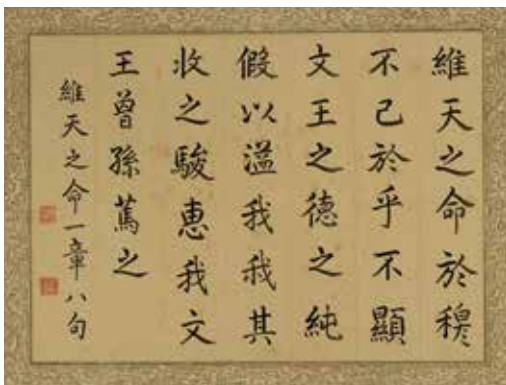 維天之命於穆
不已於乎不顯
文王之德之純
假以溢我我其
收之駿惠我文
王曾孫篤之
維天之命一章八句